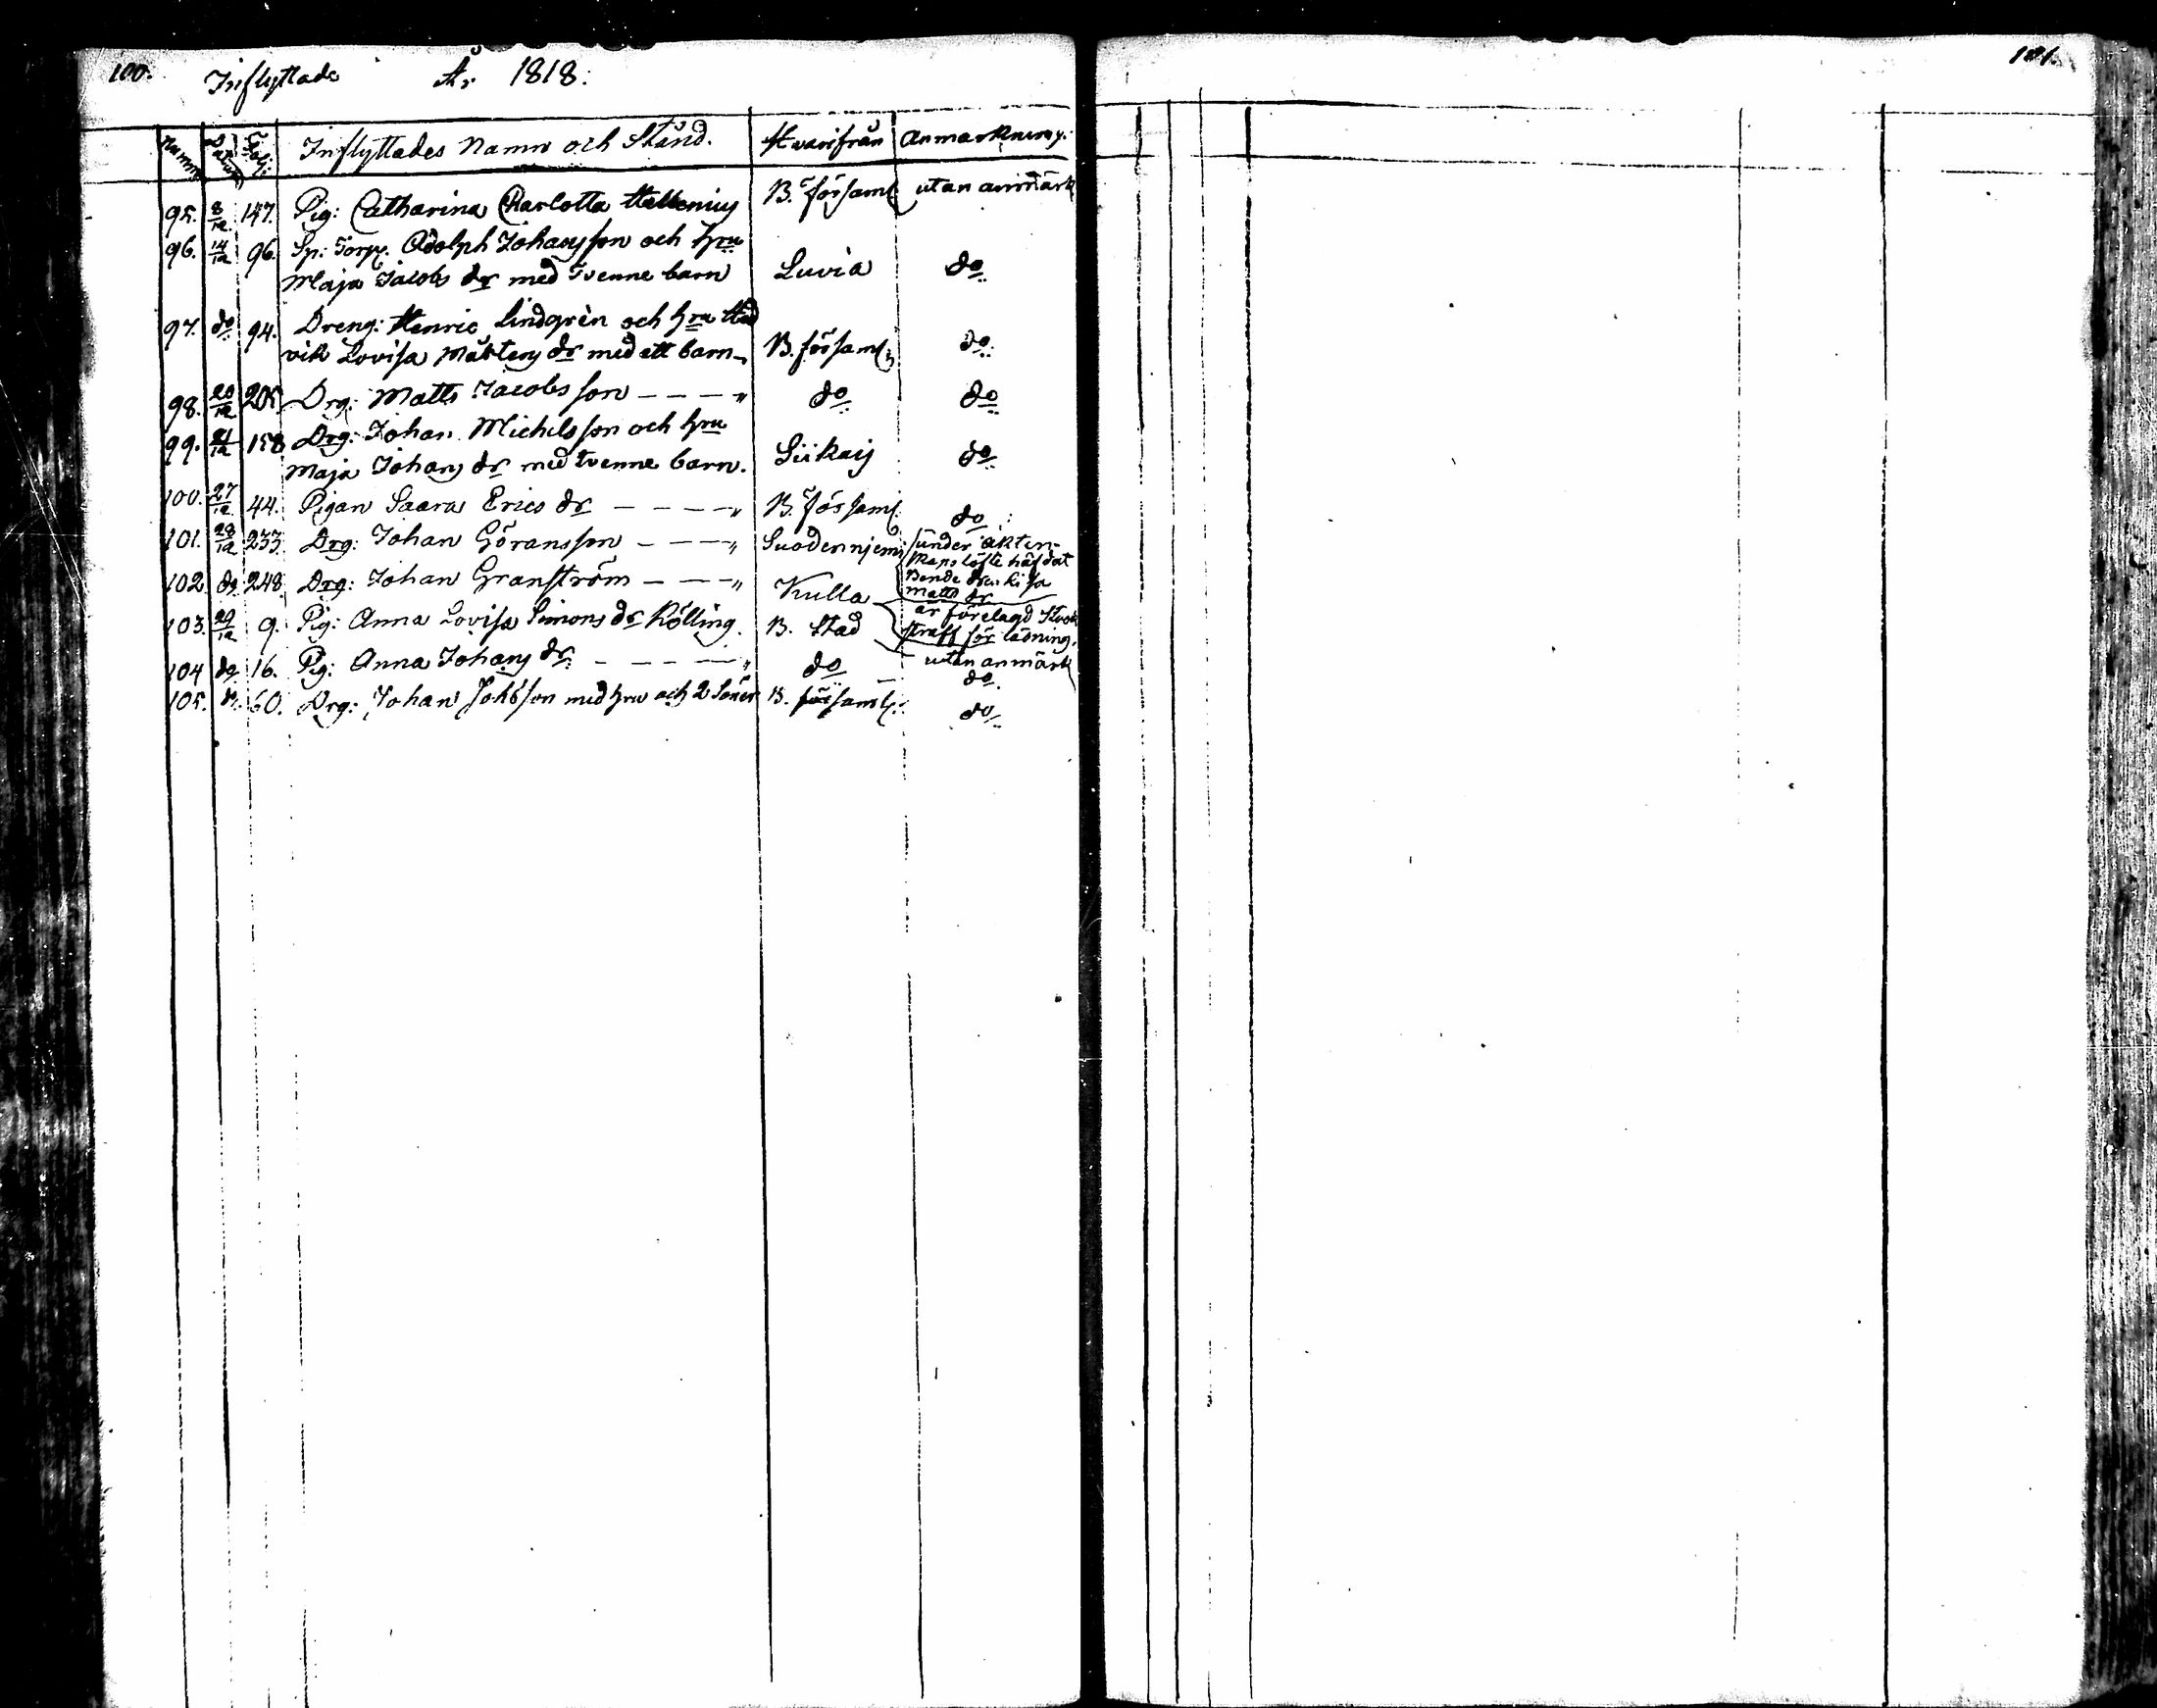 100. Inflyttade År 1818.
101.
Numer Datum Folj: Inflyttades Namn och Stånd. Hvarifrån Anmärkning.
95. 8/12 147. Pig: Catharina Charlotta Hellenius B. församl utan anmärk
96. 14/12 96. Sp: Torp. Adolph Johansson och hru
Maja Jacobs dr med Tvenne barn Luvia do
97. do 94. Dreng: Henric Lindgrèn och hru Hed
vik Lovisa Mårtens dr med ett barn B. församl: do
98. 20/12 205 Drg: Matts Jacobsson — — — „ do do
99. 21/12 158 Drg: Johan Michelsson och hru
Maja Johans dr med tvenne barn. Siikais do
100. 27/12 44. Pigan Saara Erics dr — — — — „ B. församl. do
101. 28/12 233. Drg: Johan Göransson — — — „ Suodenniemi under äkten-
skaps löfte häfdat
Bonde
Matts dr
102. do 248. Drg: Johan Granström — — — „ Kulla
103. 29/12 9. Pig: Anna Lovisa Simons dr Kölling. B. Stad är förelagd Stock
straff för läsning.
104 do 16. Pig: Anna Johans dr. — — — — „ do utan anmärk
do.
105. do. 60. Drg: Johan Johsson med hru och 2 Söner B. församl. do